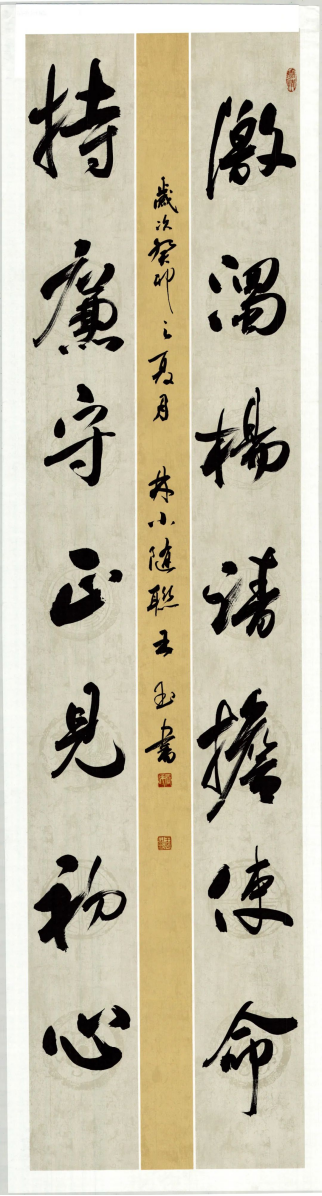 激濁揚清擔使命
持廉守正見初心
歲次癸卯之夏月 林小随聯 王玉書